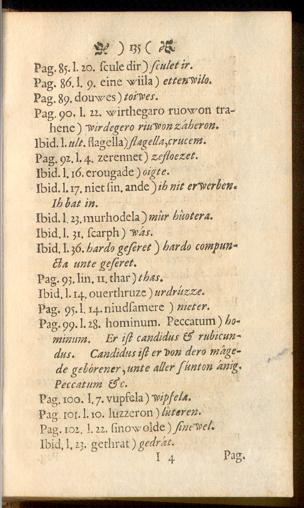 ) 135 (
Pag. 85. l. 20. scule dir) sculet ir.
Pag. 86. l. 9. eine wiila) ettenwilo.
Pag. 89. douwes) toiwes.
Pag. 90. l. 22. wirthegaro ruowon tra-
hene) wirdegero riuwon záheron.
Ibid. l. ult. flagella) flagella, crucem.
Pag. 92. l. 4. zerennet) zesloezet.
Ibid. l. 16. erougade) oigte.
Ibid. l. 17. niet sin, ande) ih nit erwerben.
Ih bat in.
Ibid. l. 23. murhodela) mur huotera.
Ibid. l. 31. scarph) wás.
Ibid. l. 36. hardo geseret) hardo compun-
cta unte geseret.
Pag. 93. lin. 11. thar) thas.
Ibid. l. 14. ouerthruze) urdruzze.
Pag. 95. l. 14. niudsamere) nieter.
Pag. 99. l. 28. hominum. Peccatum) ho-
minum. Er ist candidus & rubicun-
dus. Candidus ist er von dero máge-
de gebórener, unte aller sunton ánig.
Peccatum &c.
Pag. 100. l. 7. vupfela) wipfela.
Pag. 101. l. 10. luzzeron) luteren.
Pag. 102. l. 22. sinowolde) sinewel.
Ibid. l. 23. gethrat) gedrát.
I 4 Pag.